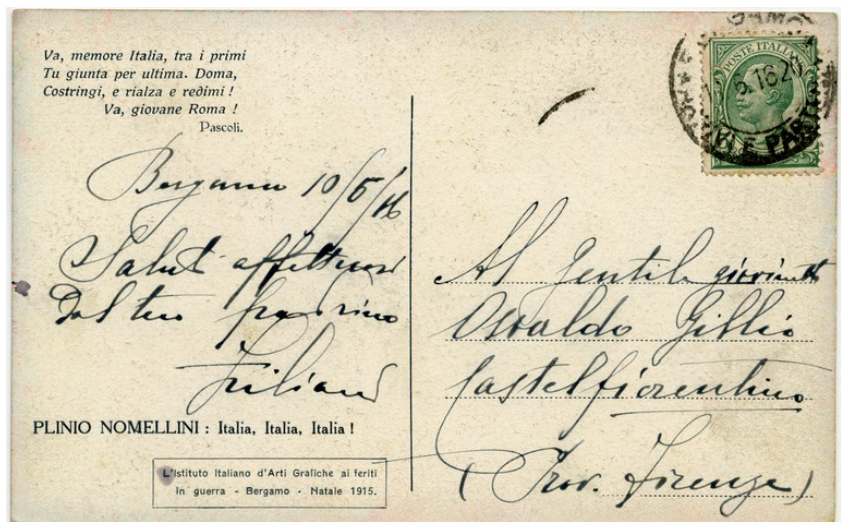 Va, memore Italia, tra i primi
Tu giunta per ultima. Doma,
Costringi, e rialza e redimi !
Va, giovane Roma !
Pascoli.
Bergamo 10/5/16
Saluti affettuosi
Dal tuo padrino
PLINIO NOMELLINI : Italia, Italia, Italia !
L'Istituto Italiano d'Arti Grafiche ai feriti
in guerra - Bergamo - Natale 1915.
POSTE ITALIANE
Al Gentile giovinetto
Osvaldo Gillio
Castelfiorentino
(Prov. Firenze)